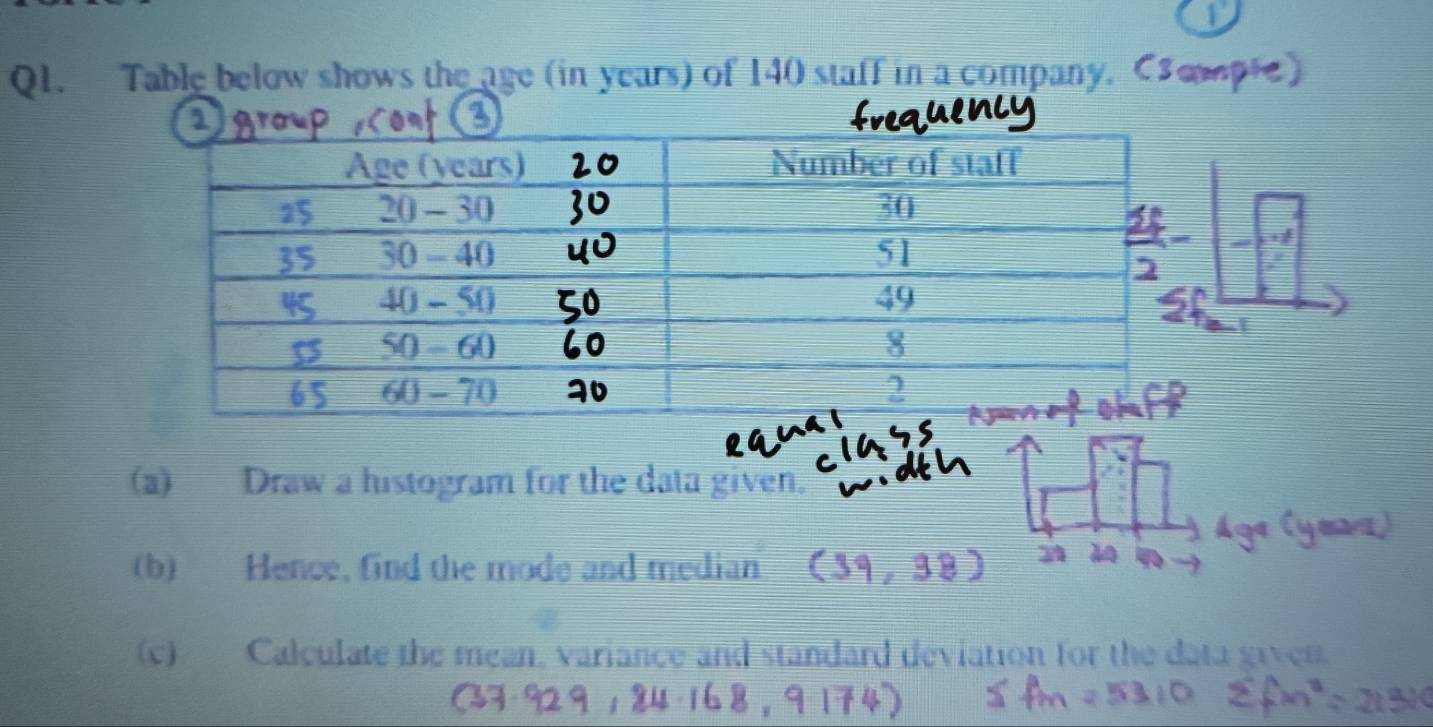 1
Q1. Table below shows the age (in years) of 140 staff in a company. (Sample)
2 group, cont 3 frequency
Age (years) 20 Number of staff
25 20 – 30 30 30
35 30 – 40 40 51
45 40 – 50 50 49
55 50 – 60 60 8
65 60 – 70 70 2
Σf
2
equal
class
width
staff
(a) Draw a histogram for the data given.
Age (years)
(b) Hence, find the mode and median (39, 38)
(c) Calculate the mean, variance and standard deviation for the data given
(37.929, 84.168, 9.174) Σfm = 5310 Σfm² =